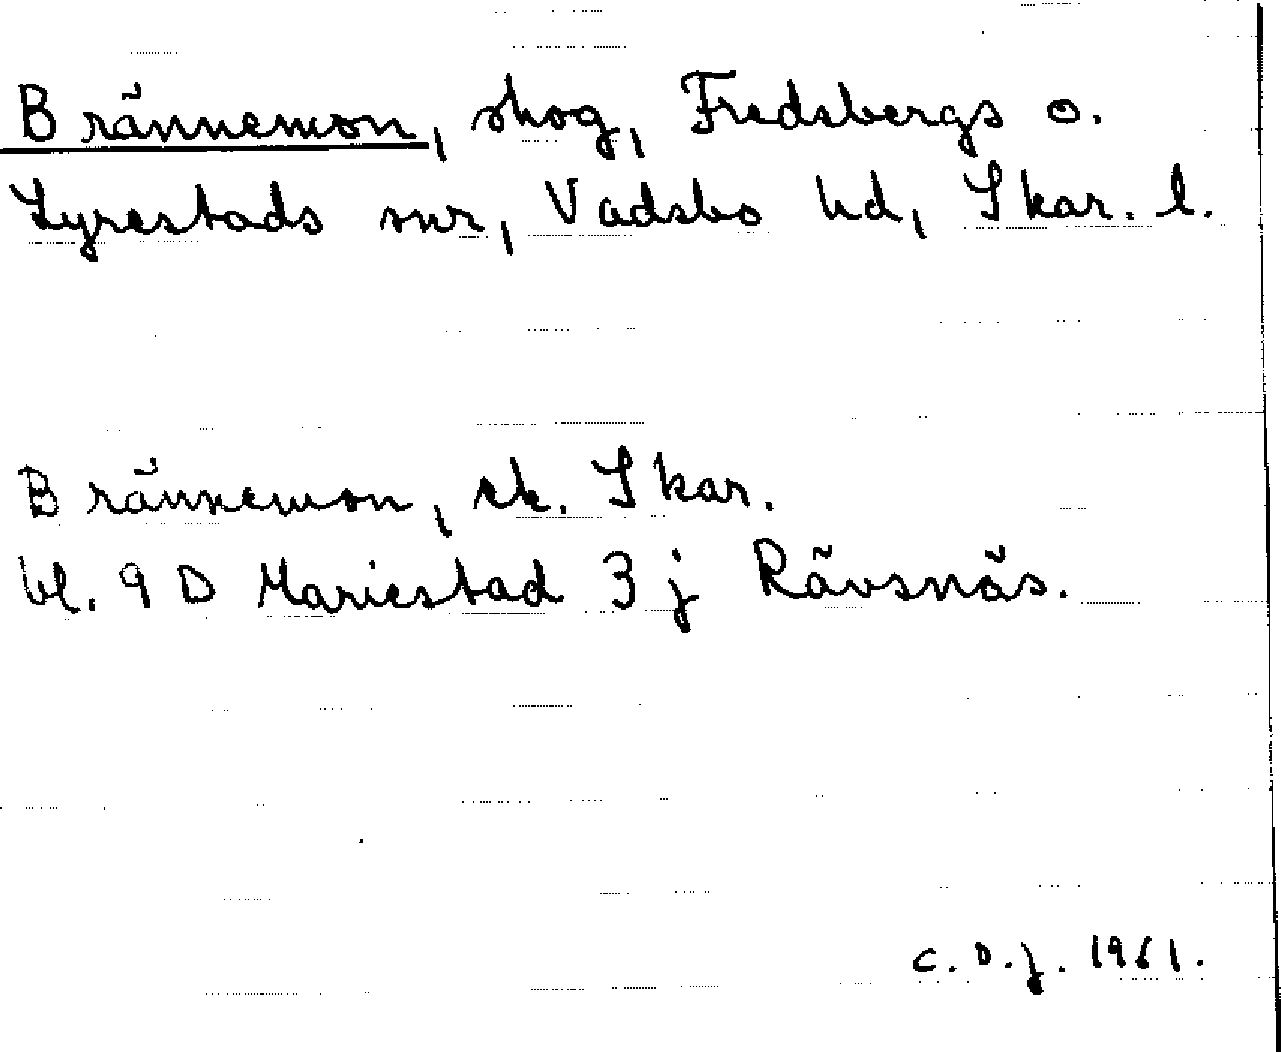 Brännemon, skog, Fredsbergs o.
Lyrestads snr, Vadsbo hd, Skar. l.
Brännemon, ek. Skar.
bl. 9 D Mariestad 3 j Rävsnäs.
C.D.J. 1961.